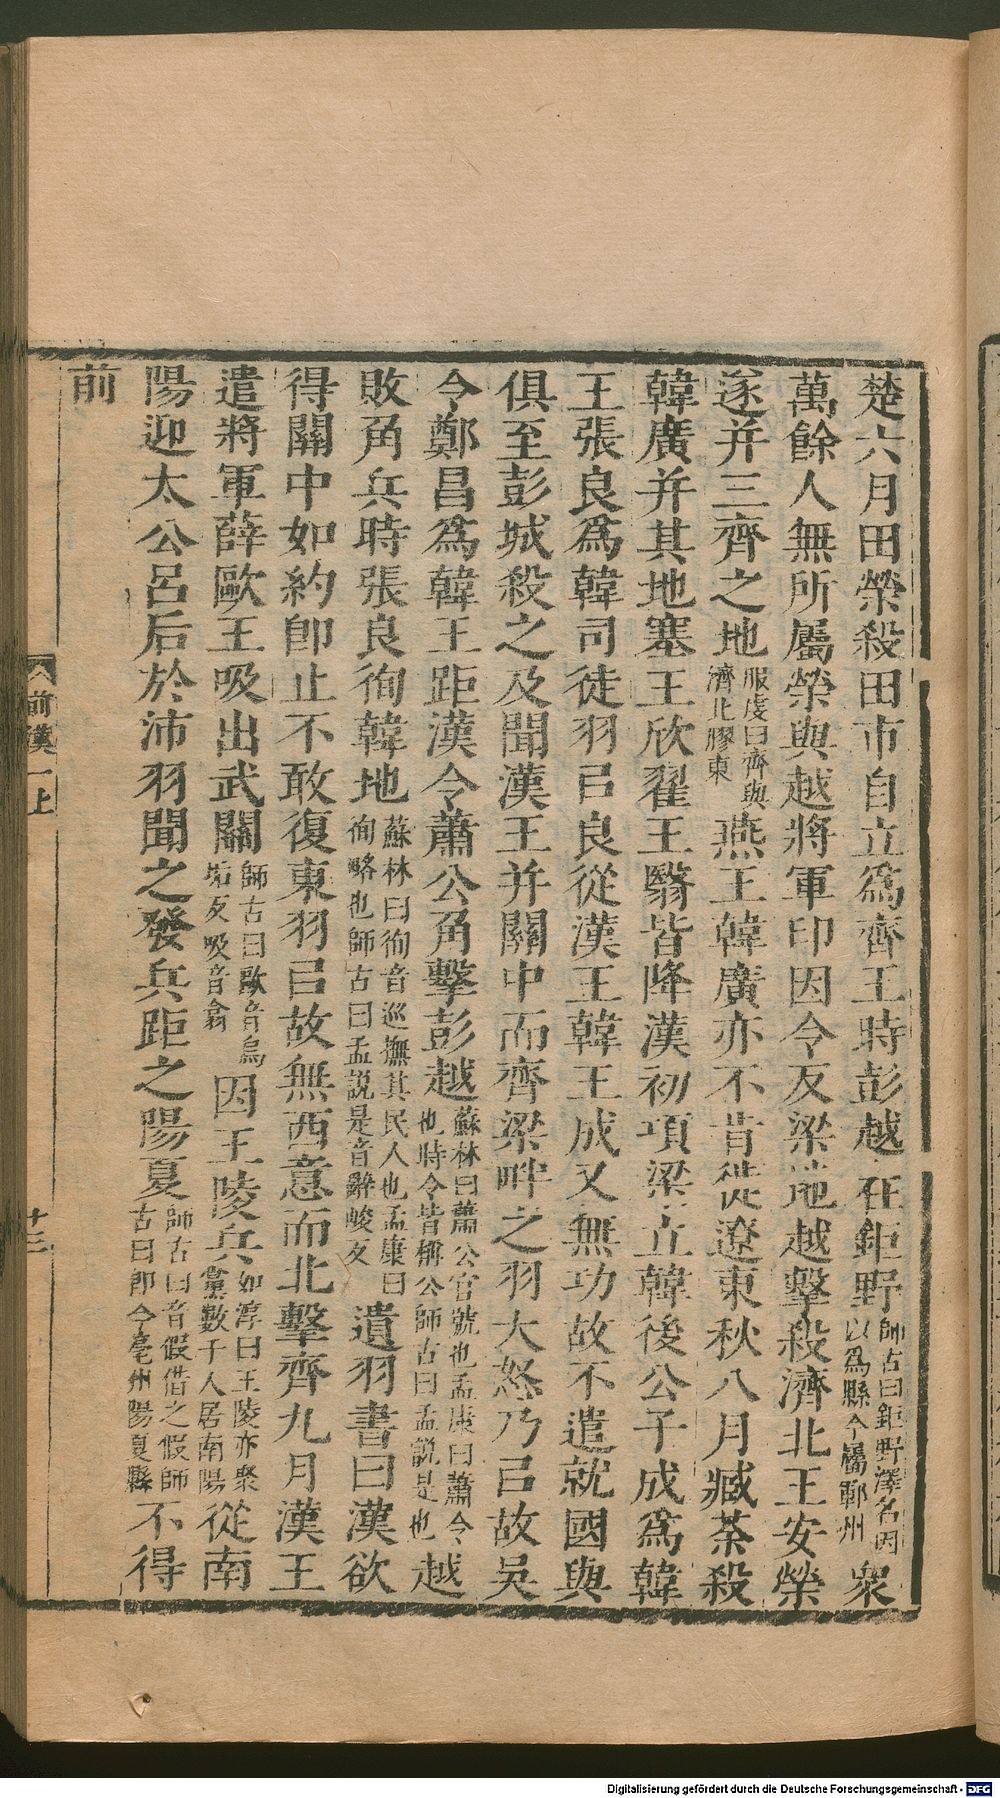 楚六月田榮殺田市自立爲齊王時彭越在鉅野師古曰鉅野澤名因以爲縣今屬鄆州衆
萬餘人無所屬榮與越將軍印因令反梁地越擊殺濟北王安榮
遂并三齊之地服虔曰齊與濟北膠東燕王韓廣亦不肯徙遼東秋八月臧荼殺
韓廣并其地塞王欣翟王翳皆降漢初項梁立韓後公子成爲韓
王張良爲韓司徒羽㠯良從漢王韓王成又無功故不遣就國與
俱至彭城殺之及聞漢王并關中而齊梁畔之羽大怒乃㠯故吳
令鄭昌爲韓王距漢令蕭公角擊彭越蘇林曰蕭公官號也孟康曰蕭令也時令皆稱公師古曰孟說是也越
敗角兵時張良徇韓地蘇林曰徇音巡撫其民人也孟康曰徇略也師古曰孟說是音辭峻反遺羽書曰漢欲
得關中如約卽止不敢復東羽㠯故無西意而北擊齊九月漢王
遣將軍薛歐王吸出武關師古曰歐音烏垢反吸音翕因王陵兵如淳曰王陵亦聚黨數千人居南陽從南
陽迎太公呂后於沛羽聞之發兵距之陽夏師古曰音假借之假師古曰卽今亳州陽夏縣不得
前
前漢一上
十三
Digitalisierung gefördert durch die Deutsche Forschungsgemeinschaft - DFG